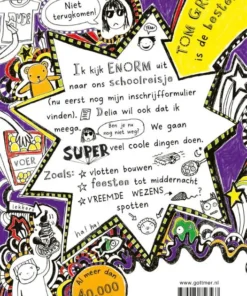 Niet
terugkomen!
TOM GR
is de beste
Ik kijk ENORM uit
naar ons schoolreisje
(nu eerst nog mijn inschrijfformulier
vinden). Delia wil ook dat ik
meega.
Ben je nu
nog niet weg?
We gaan
SUPER veel coole dingen doen.
Zoals: ★ vlotten bouwen
★ feesten tot middernacht
★ VREEMDE WEZENS
spotten
VOER
ha! ha!
Al meer dan
40.000
www.gottmer.nl